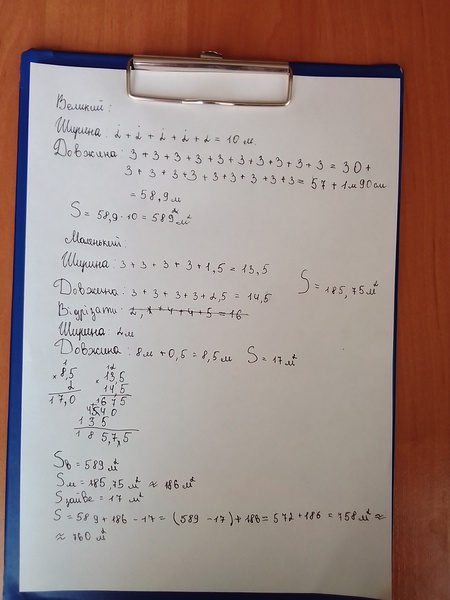 Великий:
Ширина: 2 + 2 + 2 + 2 + 2 = 10 м.
Довжина: 3+3+3+3+3+3+3+3+3+3 = 30 +
3+3+3+3+3+3+3+3+3 = 57 + 1м 90 см
= 58,9 м
S = 58,9 · 10 = 589 м²
Маленький:
Ширина: 3 + 3 + 3 + 3 + 1,5 = 13,5
Довжина: 3 + 3 + 3 + 3 + 2,5 = 14,5
S = 185,75 м²
Відрізати:
Ширина: 2м
Довжина: 8м + 0,5 = 8,5 м S = 17 м²
× 8,5
2
17,0
× 13,5
14,5
1675
540
135
185,7,5
Sв = 589 м²
Sм = 185,75 м² ≈ 186 м²
S зайве = 17 м²
S = 589 + 186 - 17 = (589 - 17) + 186 = 572 + 186 = 758 м² ≈
≈ 760 м²